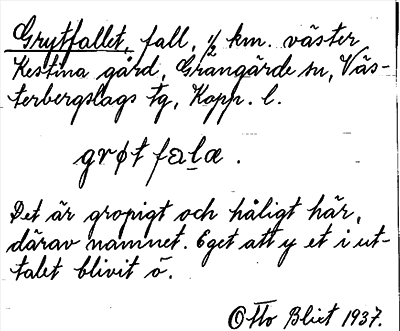 Grytfallet, fall, ½ km. väster
Kestina gård, Grangärde sn, Väs-
terbergslags tg, Kopp. l.
grøt fala .
Det är gropigt och håligt här,
därav namnet. Eget att y et i ut-
talet blivit ö.
Otto Blixt 1937.